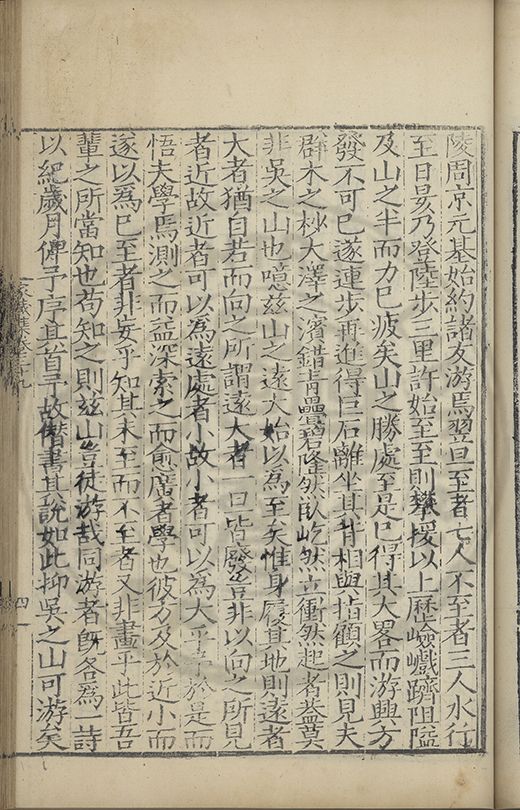 陵周京元基始約諸友游焉翌旦至者七人不至者三人水行
至日昃乃登陸步三里許始至至則攀援以上歷嶮巇躋阻隘
及山之半而力已疲矣山之勝處至是已得其大畧而游興方
發不可已遂連步再進得巨石離坐其背相與指顧之則見夫
群木之杪大澤之濱錯青疊碧隆然臥屹然立衝然起者蓋莫
非吳之山也噫茲山之遠大始以為至矣惟身履其地則遠者
大者猶自若而向之所謂遠大者一旦皆廢豈非以向之所見
者近故近者可以為遠處者小故小者可以為大乎予於是而
悟夫學焉測之而益深索之而愈廣者學也彼方及於近小而
遂以為已至者非妄乎知其未至而不至者又非畫乎此皆吾
輩之所當知也苟知之則茲山豈徒游哉同游者旣各為一詩
以紀歲月俾予序其首予故僭書其說如此抑吳之山可游矣